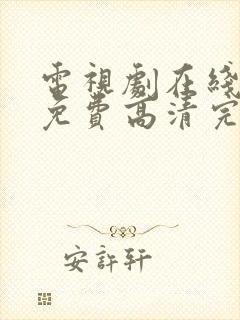 電視劇在綫
免費高清完
安許軒